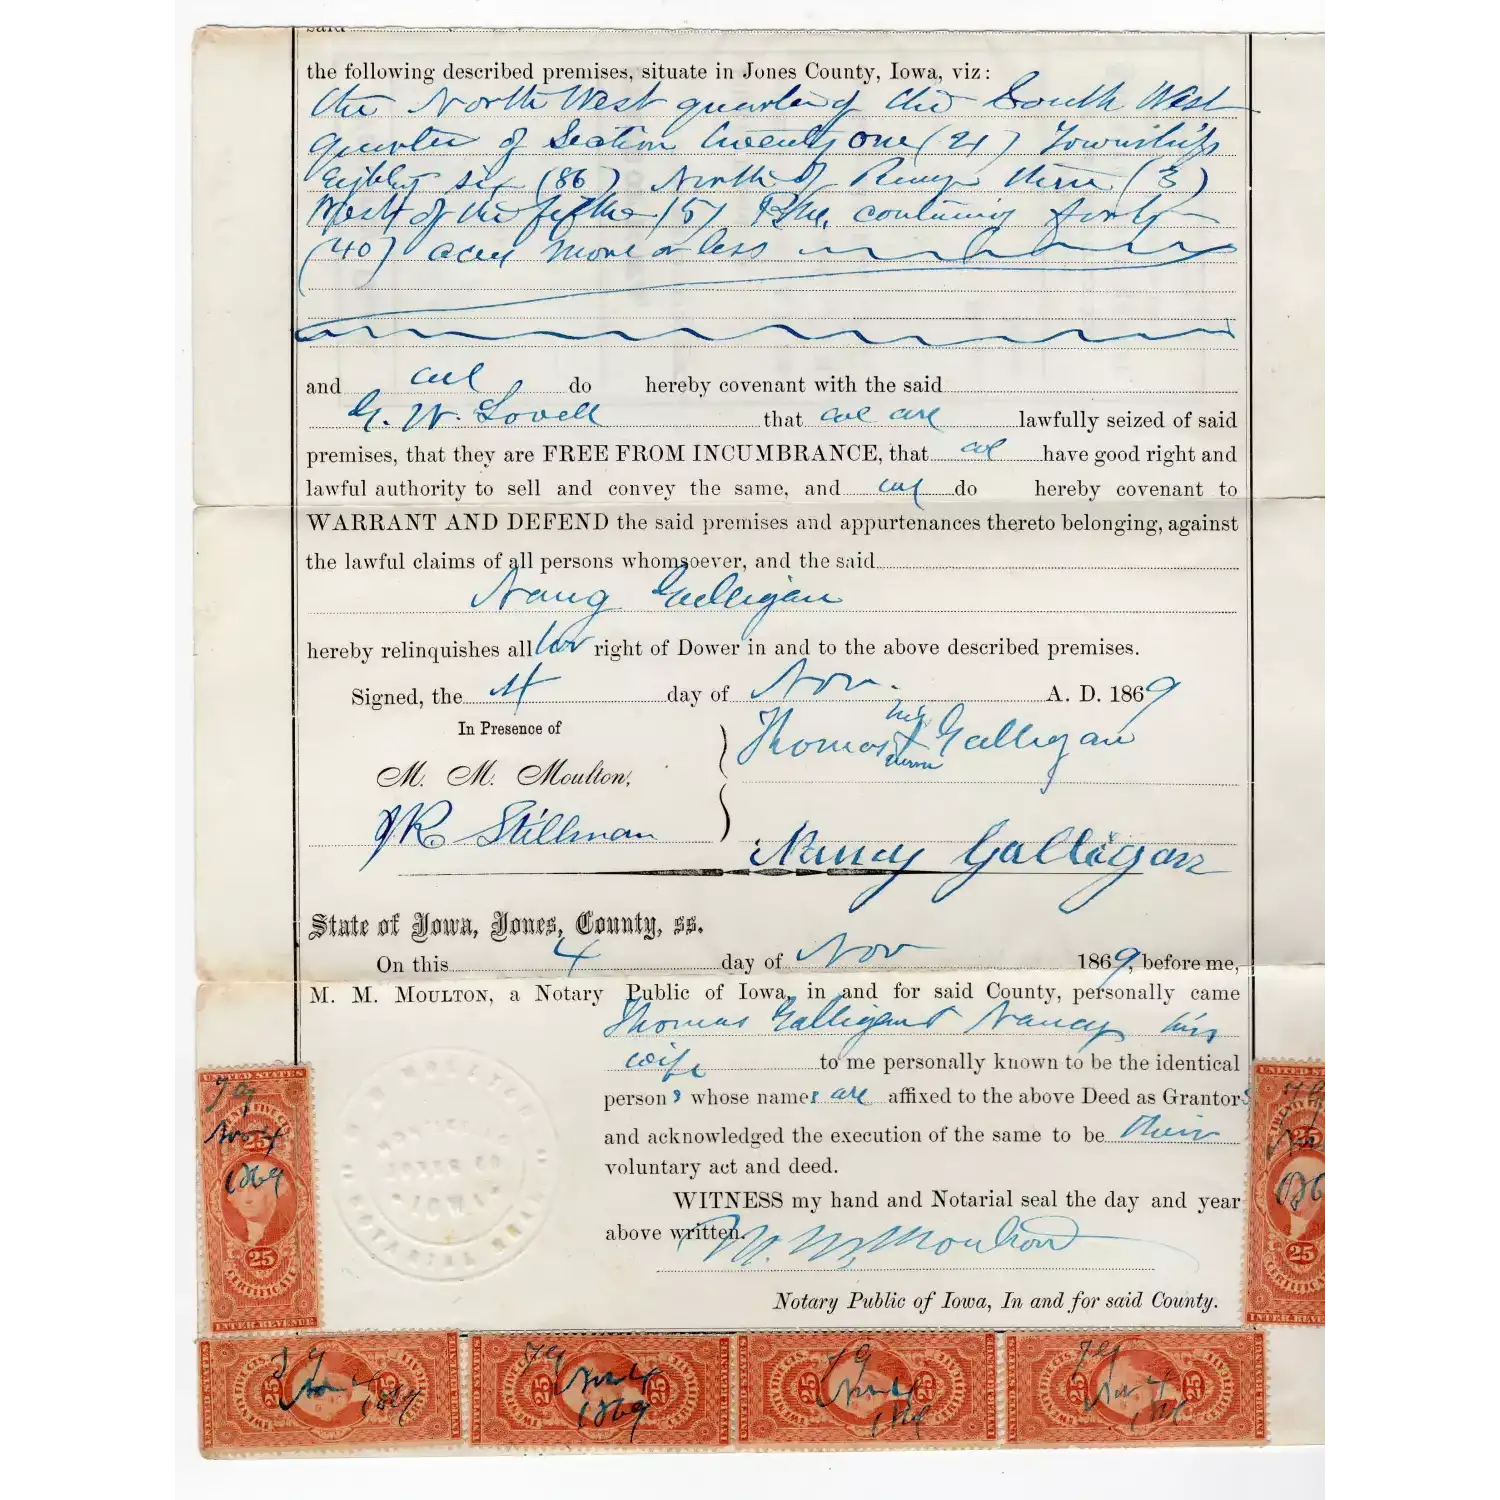 said
the following described premises, situate in Jones County, Iowa, viz:
the North West quarter of the South West
quarter of Section twenty one (21) Township
Eighty six (86) North of Range three (3)
West of the fifth (5) P.M. containing forty
(40) acres more or less
and we do hereby covenant with the said
G. W. Lovell that we are lawfully seized of said
premises, that they are FREE FROM INCUMBRANCE, that we have good right and
lawful authority to sell and convey the same, and we do hereby covenant to
WARRANT AND DEFEND the said premises and appurtenances thereto belonging, against
the lawful claims of all persons whomsoever, and the said
Nancy Galligan
hereby relinquishes all her right of Dower in and to the above described premises.
Signed, the 4 day of Nov. A. D. 1869
In Presence of
his
Thomas X Galligan
mark
M. M. Moulton,
J R Stillman
Nancy Galligan
State of Iowa, Jones, County, ss.
On this 4 day of Nov 1869, before me,
M. M. MOULTON, a Notary Public of Iowa, in and for said County, personally came
Thomas Galligan & Nancy his
wife to me personally known to be the identical
persons whose names are affixed to the above Deed as Grantors
and acknowledged the execution of the same to be their
voluntary act and deed.
WITNESS my hand and Notarial seal the day and year
above written.
M. M. Moulton
Notary Public of Iowa, In and for said County.
M M MOULTON
NOTARIAL SEAL
IOWA
UNITED STATES
TWENTY FIVE CTS.
25 25
T G
Nov 4
1869
25
CERTIFICATE
INTER. REVENUE
UNITED ST
T G
25
No
186
25
CERTIFICATE
INTER. REVENUE
T G
Nov 4
1869
25 25
T G
Nov 4
1869
25 25
T G
Nov 4
1869
25 25
T G
Nov 4
1869
25 25